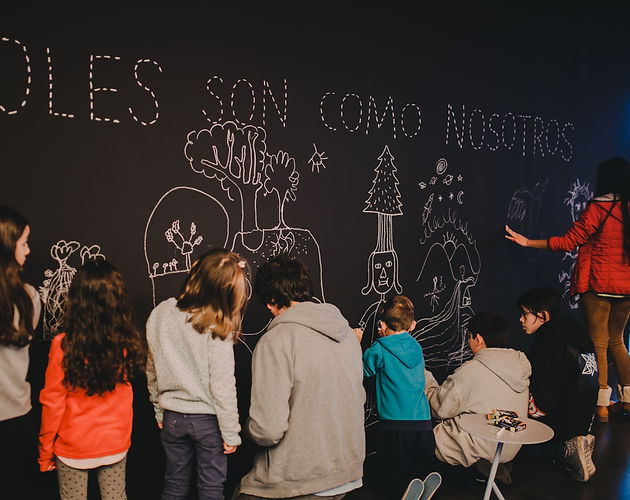 OLES SON COMO NOSOTROS